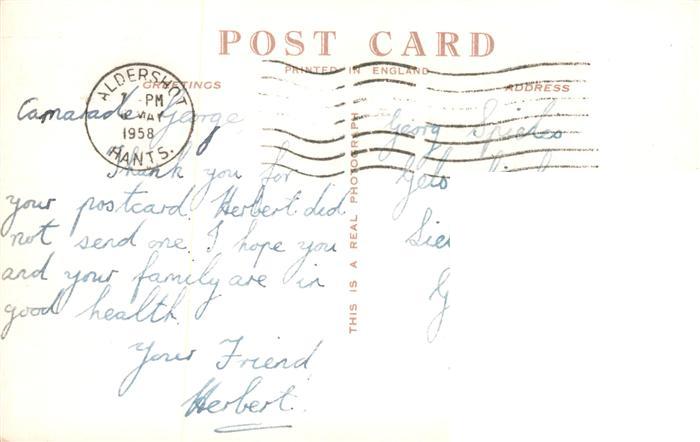 POST CARD
PRINTED IN ENGLAND
GREETINGS
ADDRESS
ALDERSHOT
PM
MAY
1958
HANTS.
Camarade George
Thank you for
your postcard. Herbert did
not send one. I hope you
and your family are in
good health.
Your Friend
Herbert.
THIS IS A REAL PHOTOGRAPH
Georg